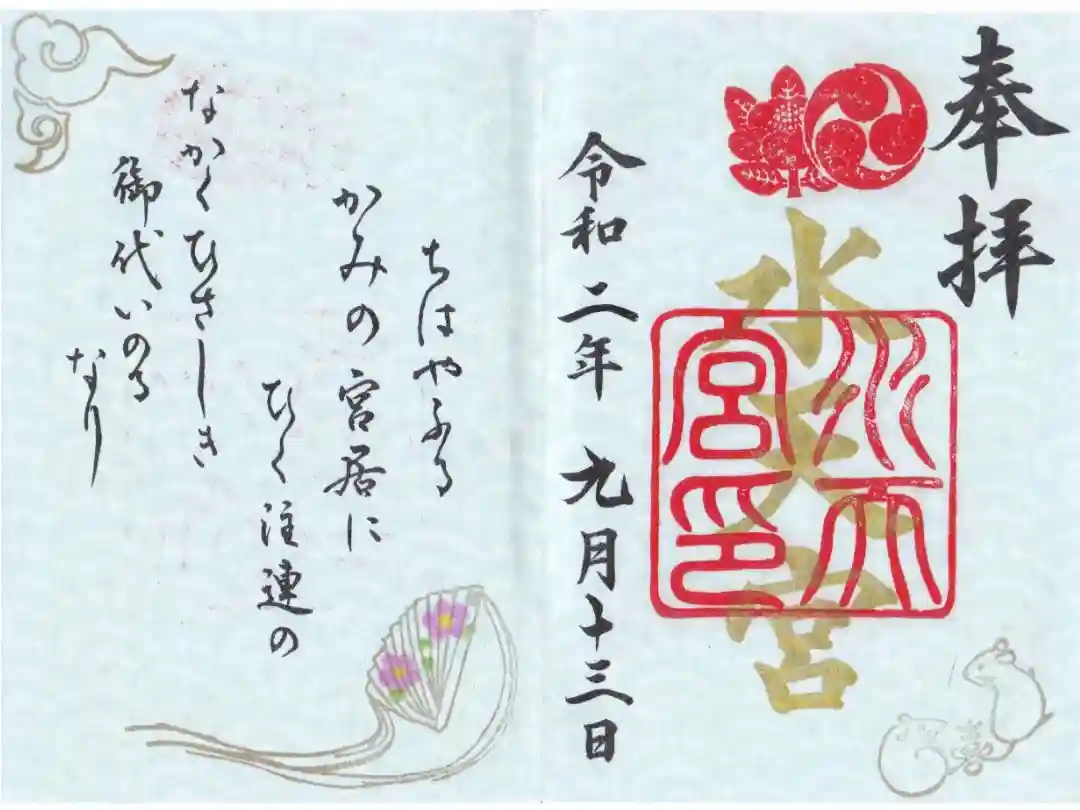 奉拝
水天宮
水天宮印
令和二年 九月十三日
ちはやふる
かみの宮居に
ひく注連の
なかくひさしき
御代いのる
なり